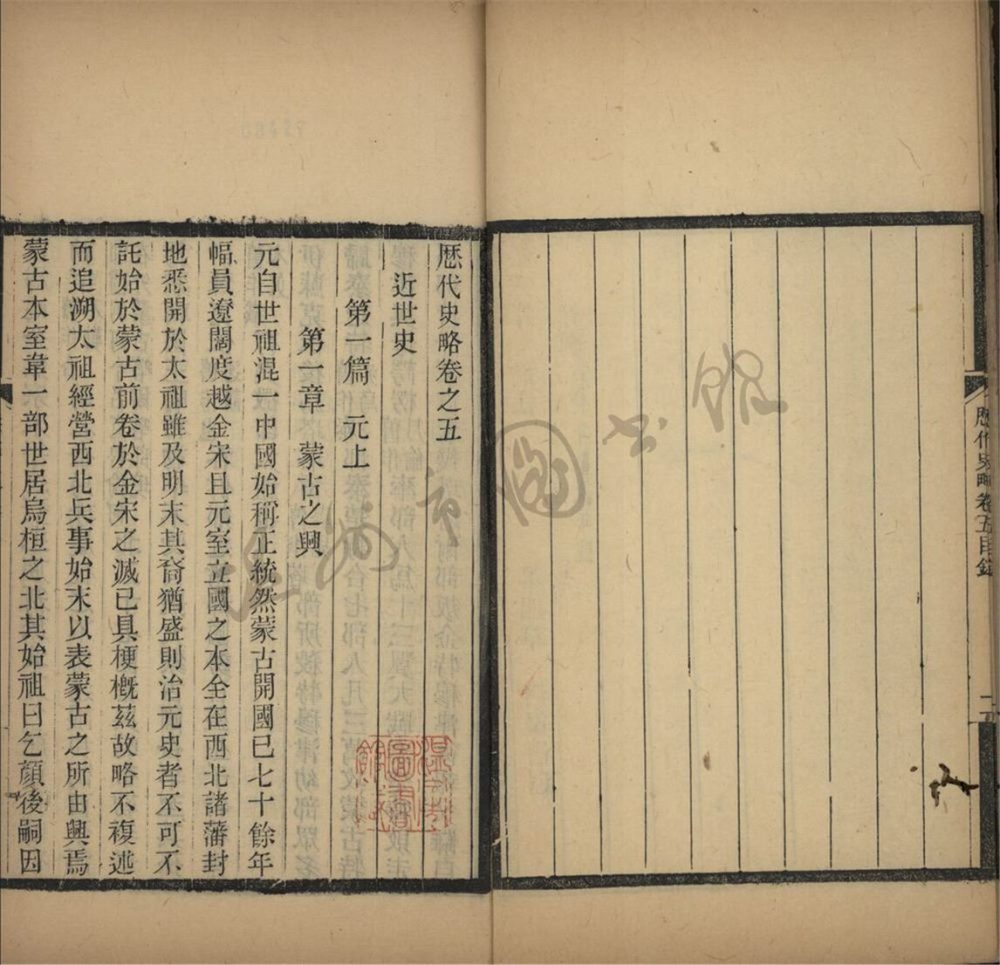 歷代史略卷五目錄
歷代史略卷之五
近世史
第一篇 元上
第一章 蒙古之興
元自世祖混一中國始稱正統然蒙古開國已七十餘年
幅員遼闊度越金宋且元室立國之本全在西北諸藩封
地悉開於太祖雖及明末其裔猶盛則治元史者不可不
託始於蒙古前卷於金宋之滅已具梗概茲故略不複述
而追溯太祖經營西北兵事始末以表蒙古之所由興焉
蒙古本室韋一部世居烏桓之北其始祖曰乞顏後嗣因
溫州市圖書館